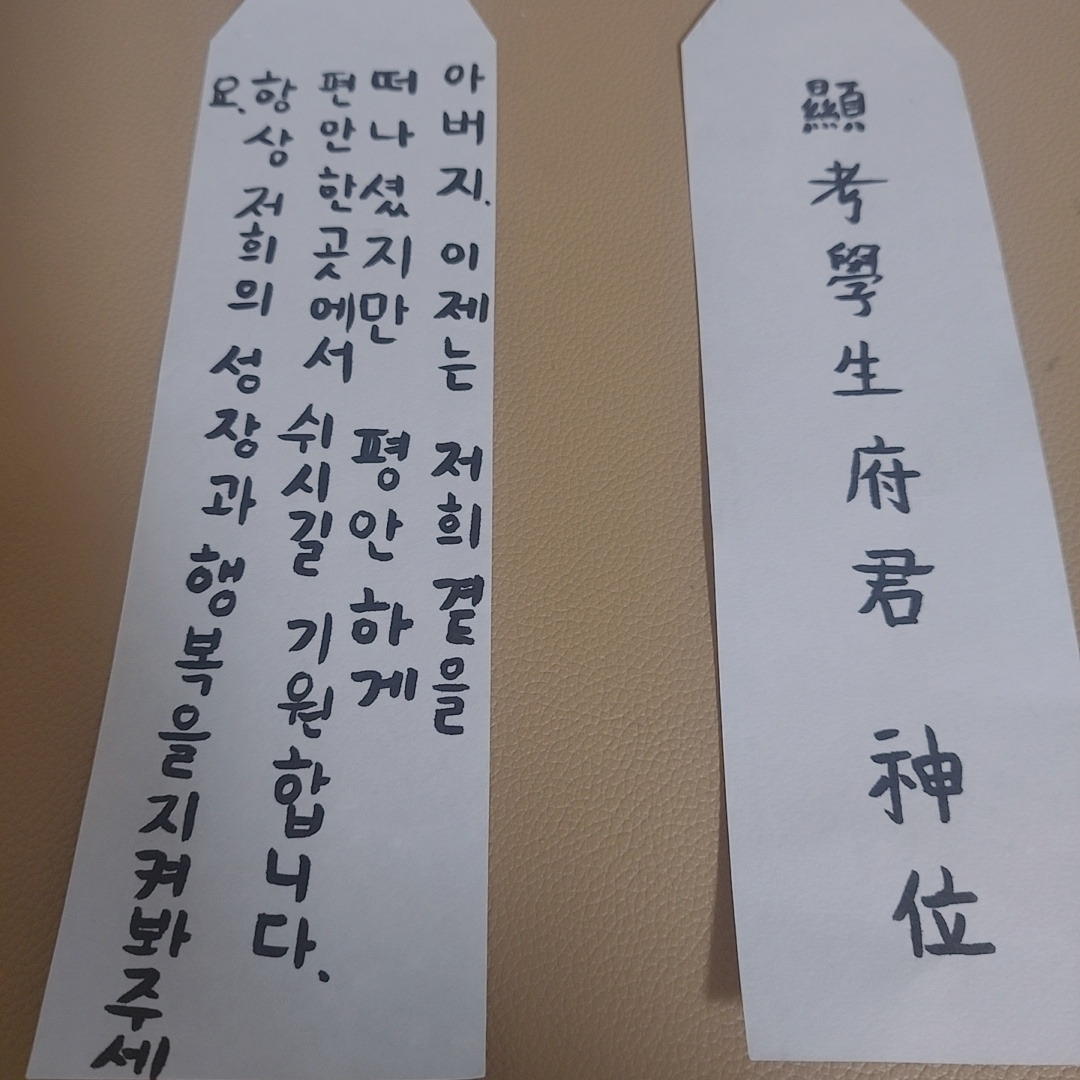 아버지. 이제는 저희 곁을
떠나셨지만 평안하게
편안한곳에서 쉬시길 기원합니다.
항상 저희의 성장과 행복을 지켜봐주세
요.
顯考學生府君 神位